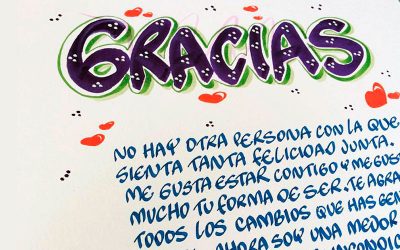 GRACIAS
NO HAY OTRA PERSONA CON LA QUE
SIENTA TANTA FELICIDAD JUNTA.
ME GUSTA ESTAR CONTIGO Y ME GUS
MUCHO TU FORMA DE SER. TE AGRA
TODOS LOS CAMBIOS QUE HAS GEN
AHORA SOY UNA MEJOR